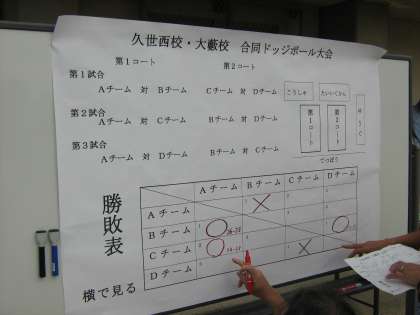 久世西校・大藪校 合同ドッジボール大会
第1コート 第2コート
第1試合
Aチーム 対 Bチーム Cチーム 対 Dチーム
第2試合
Aチーム 対 Cチーム Bチーム 対 Dチーム
第3試合
Aチーム 対 Dチーム Bチーム 対 Cチーム
こうしゃ たいいくかん
第1コート 第2コート
てつぼう
勝敗表
横で見る
Aチーム Bチーム Cチーム Dチーム
Aチーム
Bチーム
Cチーム
Dチーム